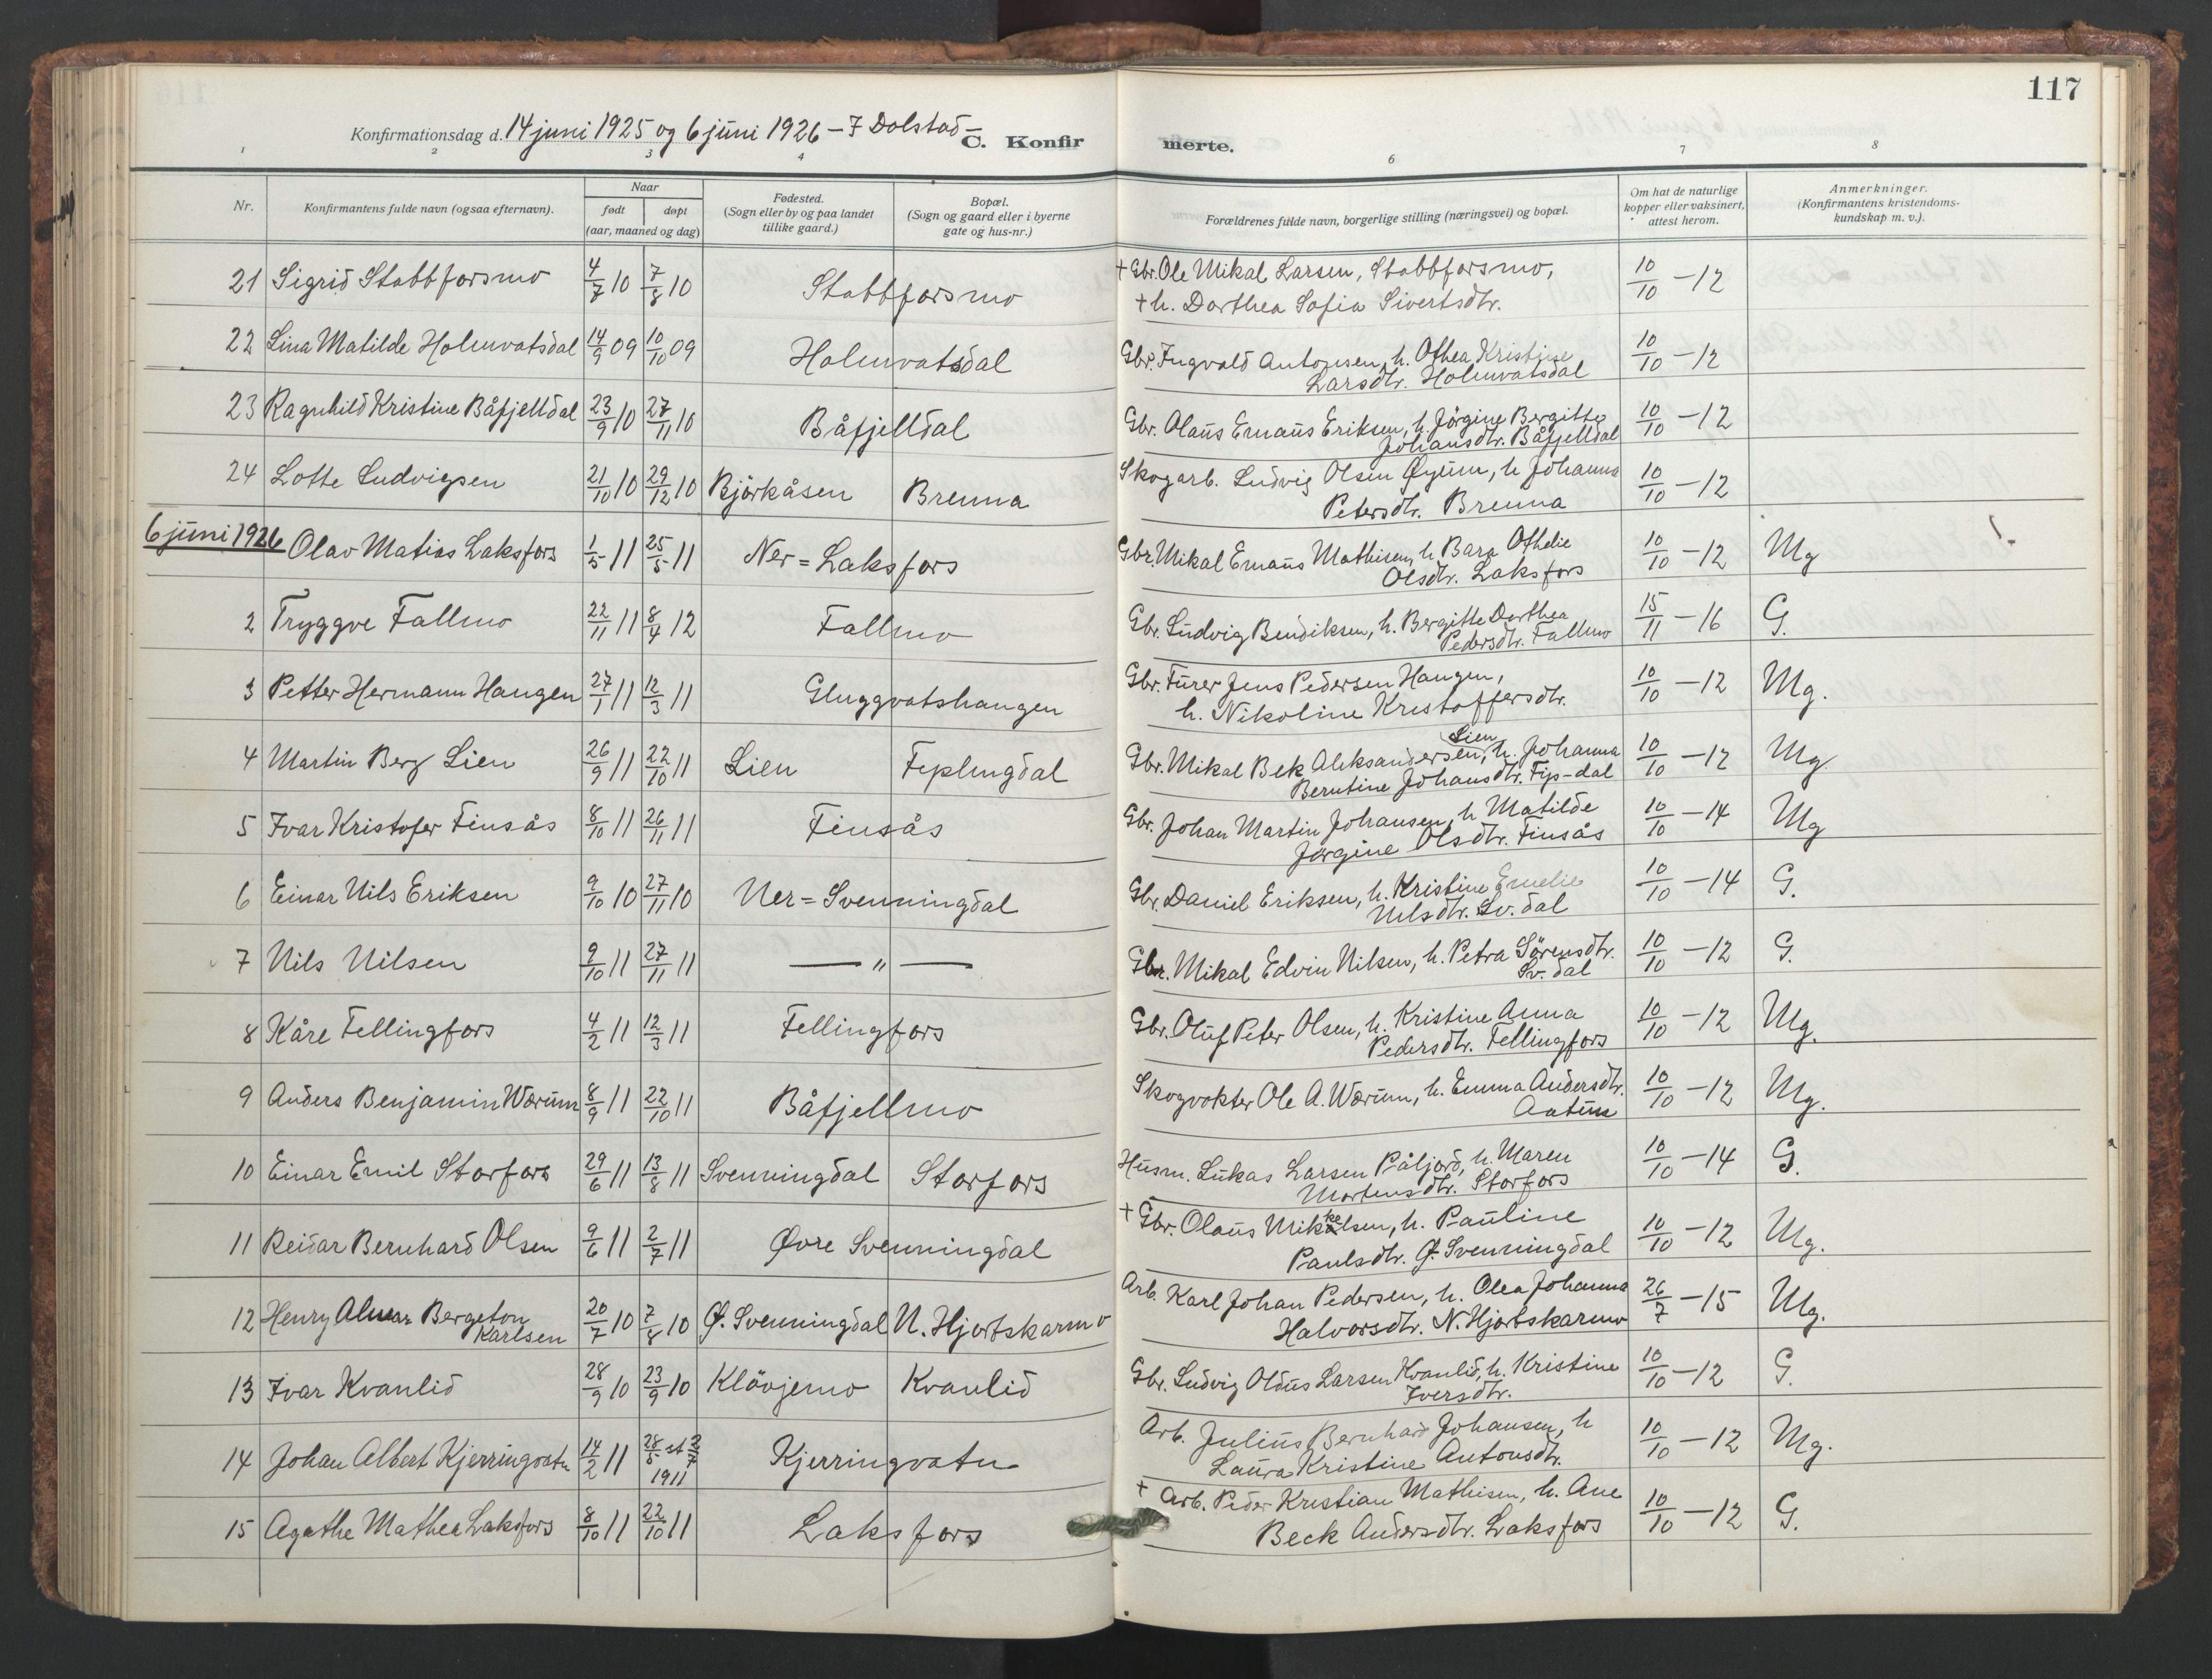 117
Konfirmationsdag d. 14 juni 1925 og 6 juni 1926 – 7 Dolstad –
C. Konfirmerte.
1 2 3 4 6 7 8
Nr.
Konfirmantens fulde navn (ogsaa efternavn).
Naar
født døpt
(aar, maaned og dag)
Fødested.
(Sogn eller by og paa landet
tillike gaard.)
Bopæl.
(Sogn og gaard eller i byerne
gate og hus-nr.)
Forældrenes fulde navn, borgerlige stilling (næringsvei) og bopæl.
Om hat de naturlige
kopper eller vaksinert,
attest herom.
Anmerkninger.
(Konfirmantens kristendoms-
kundskap m. v.).
21 Sigrid Stabbforsmo 4/7 10 7/8 10 Stabbforsmo + Gbr. Ole Mikal Larsen, Stabbforsmo, 10/10 – 12
+ h. Dorthea Sofia Sivertsdtr.
22 Lina Matilde Holmvatsdal 14/9 09 10/10 09 Holmvatsdal Gbr. Ingvald Antonsen, h. Othea Kristine 10/10 – 12
Larsdtr. Holmvatsdal
23 Ragnhild Kristine Båfjelldal 23/9 10 27/11 10 Båfjelldal Gbr. Olaus Emaus Eriksen, h. Jörgine Bergitte 10/10 – 12
Johansdtr. Båfjelldal
24 Lotte Ludvigsen 21/10 10 29/12 10 Björkåsen Brenna Skogarb. Ludvig Olsen Øyum, h Johanna 10/10 – 12
Petersdtr. Brenna
6 juni 1926 Olav Matias Laksfors 1/5 11 25/5 11 Ner = Laksfors Gbr. Mikal Emaus Mathisen, h. Bara Othelie 10/10 – 12 Mg
Olsdtr. Laksfors
2 Tryggve Fallmo 22/11 11 8/4 12 Fallmo Gbr. Ludvig Bendiksen, h. Bergitte Dorthea 15/11 – 16 G.
Pedersdtr. Fallmo
3 Petter Hermann Haugen 27/1 11 12/3 11 Gluggvatshaugen Gbr. Furer Jens Pedersen Haugen, 10/10 – 12 Mg.
h. Nikoline Kristoffersdtr.
4 Martin Berg Lien 26/9 11 22/10 11 Lien Fiplingdal Gbr. Mikal Bek Aleksandersen Lien, h. Johanna 10/10 – 12 Mg
Berntine Johansdtr. Fip-dal
5 Ivar Kristofer Finsås 8/10 11 26/11 11 Finsås Gbr. Johan Martin Johansen, h Matilde 10/10 – 14 Mg
Jørgine Olsdtr. Finsås
6 Einar Nils Eriksen 9/10 10 27/11 10 Ner = Svenningdal Gbr. Daniel Eriksen, h. Kristine Emelie 10/10 – 14 G.
Nilsdtr. Sv.dal
7 Nils Nilsen 9/10 11 27/11 11 — " — Gbr. Mikal Edvin Nilsen, h. Petra Sörensdtr. 10/10 – 12 G.
Sv. dal
8 Kåre Fellingfors 4/2 11 12/3 11 Fellingfors Gbr. Oluf Peter Olsen, h. Kristine Anna 10/10 – 12 Mg.
Pedersdtr. Fellingfors
9 Anders Benjamin Wærum 8/9 11 22/10 11 Båfjellmo Skogvokter Ole A. Wærum, h. Emma Andersdtr. 10/10 – 12 Mg.
10 Einar Emil Storfors 29/6 11 13/8 11 Svenningdal Storfors Husm. Lukas Larsen Påljord, h. Maren 10/10 – 14 G.
Mortensdtr. Storfors
11 Reidar Bernhard Olsen 9/6 11 2/7 11 Øvre Svenningdal + Gbr. Olaus Mikkelsen, h. Pauline 10/10 – 12 Mg.
Paulsdtr. Ø. Svenningdal
12 Henry Alvar Bergeton 20/7 10 7/8 10 Ø. Svenningdal N. Hjortskarmo Arb. Karl Johan Pedersen, h. Olea Johanna 26/7 – 15 Mg.
Karlsen Halvorsdtr. N. Hjortskarmo
13 Ivar Kvanlid 28/9 10 23/9 10 Klövjemo Kvanlid Gbr. Ludvig Oldus Larsen Kvanlid, h. Kristine 10/10 – 12 G.
Iversdtr.
14 Johan Albert Kjerringvatn 14/2 11 28/5 st 2/7 Kjerringvatn Arb. Julius Bernhard Johansen, h 10/10 – 12 Mg.
1911 Laura Kristine Antonsdtr.
15 Agathe Mathea Laksfors 8/10 11 22/10 11 Laksfors + Arb. Peder Kristian Mathisen, h. Ane 10/10 – 12 G.
Beck Andersdtr. Laksfors